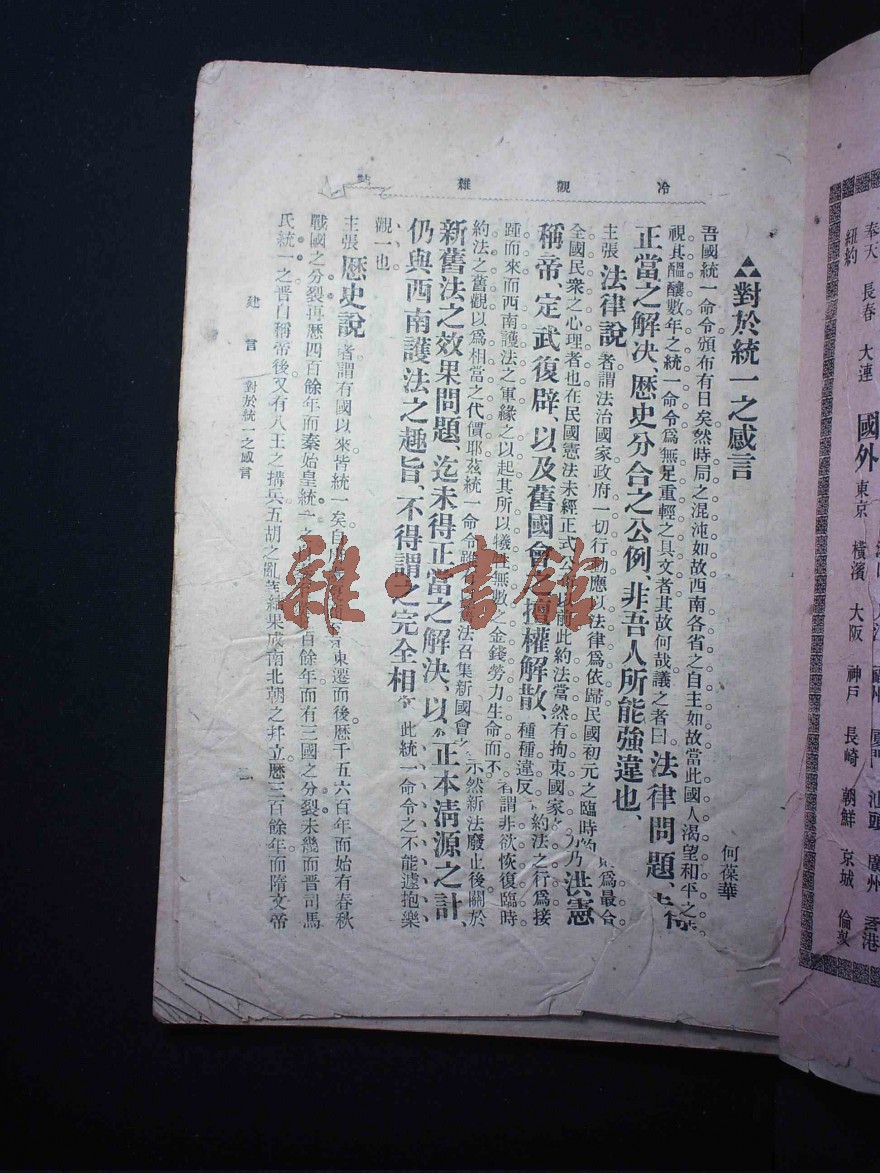 冷觀雜誌
對於統一之感言
何葆華
吾國統一命令頒布有日矣然時局之混沌如故西南各省之自主如故當此國人渴望和平之
視其醞釀數年之統一命令爲無足重輕之具文者其故何哉議之者曰法律問題、未得
正當之解决、歷史分合之公例、非吾人所能強違也、
主張法律說者謂法治國家政府一切行動應以法律爲依歸民國初元之臨時約爲最合
全國民衆之心理者也在民國憲法未經正式公前此約法當然有拘束國家乃洪憲
稱帝、定武復辟、以及舊國會之擅權解散、種種違反約法之行爲接
踵而來而西南護法之軍緣之以起其所以犧牲無數之金錢勞力生命而不者謂非欲恢復臨時
約法之舊觀以爲相當之代價耶茲統一命令雖法召集新國會之示然新法廢止後關於
新舊法之效果問題、迄未得正當之解决、以正本清源之計、
仍與西南護法之趣旨、不得謂之完全相此統一命令之不能遽抱樂
觀一也
主張歷史說者謂有國以來皆統一矣自東遷而後歷千五六百年而始有春秋
戰國之分裂再歷四百餘年而秦始皇統一之百餘年而有三國之分裂未幾而晉司馬
氏統一之晉自稱帝後又有八王之搆兵五胡之亂華結果成南北朝之幷立歷三百餘年而隋文帝
建言 對於統一之感言
二
奉天 長春 大連
紐約
國外
東京 橫濱 大阪 神戶 長崎 朝鮮 京城 倫敦
福州 廈門 汕頭 廣州 香港
雜·書館